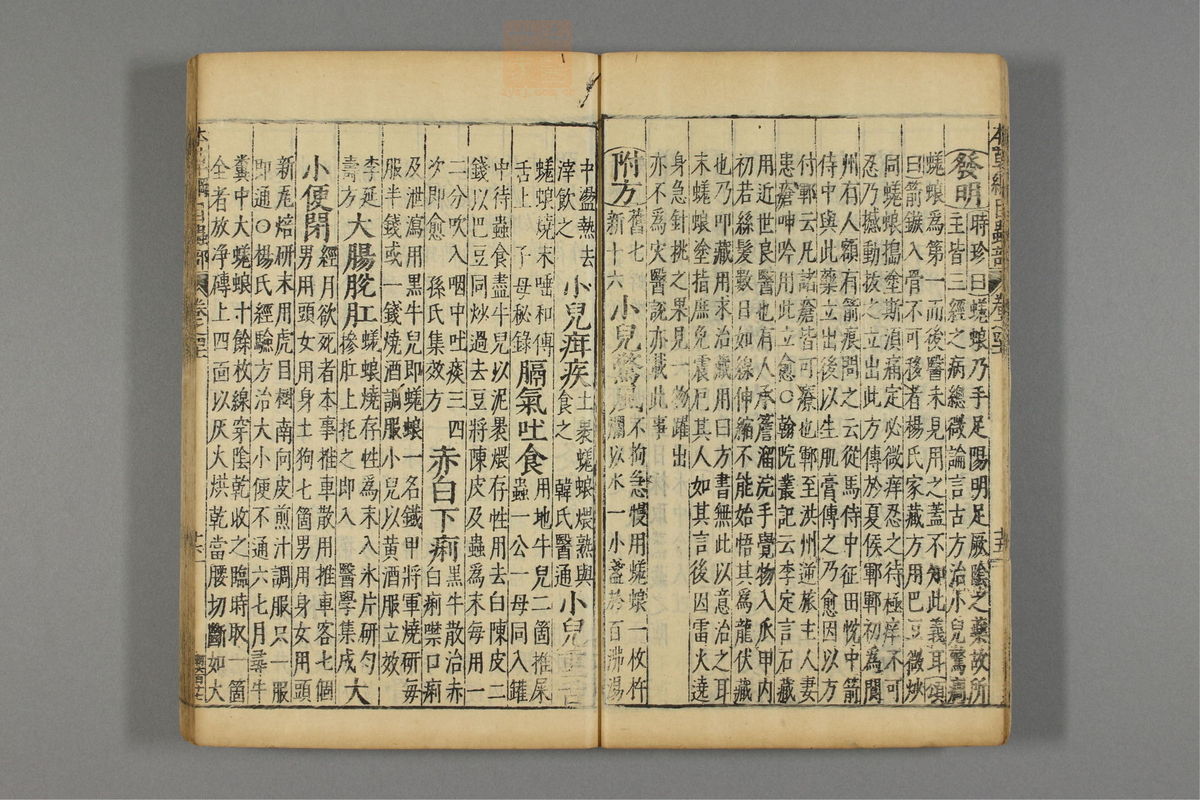 本草綱目蟲部
發明時珍曰蜣蜋乃手足陽明足厥陰之藥故所
主皆三經之病總微論言古方治小兒驚癇
蜣蜋為第一而後醫未見用之蓋不知此義耳頌
曰箭鏃入骨不可移者楊氏家藏方用巴豆微炒
同蜣蜋搗塗斯須痛定必微痒忍之待極痒不可
忍乃撼動拔之立出此方傳於夏侯鄆鄆初為閬
州有人額有箭痕問之云從馬侍中征田悅中箭
侍中與此藥立出後以生肌膏傅之乃愈因以方
付鄆云凡諸瘡皆可療也鄆至洪州逆旅主人妻
患瘡呻吟用此立愈○翰院叢記云李定言石藏
用近世良醫也有人承簷溜浣手覺物入爪甲内
初若絲髮數日如線伸縮不能始悟其為龍伏藏
也乃叩藏用求治藏用曰方書無此以意治之耳
末蜣蜋塗指庶免震厄其人如其言後因雷火遶
身急針挑之果見一物躍出
亦不為灾醫說亦載此事
附方舊七新十六小兒驚風不拘急慢用蜣蜋一枚杵爛以水一小盞於百沸湯
中盪熱去滓飲之小兒疳疾土裹蜣蜋煨熟與食之 韓氏醫通小兒重舌
蜣蜋燒末唾和傅舌上 子母秘錄膈氣吐食用地牛兒二箇推屎蟲一公一母同入罐
中待蟲食盡牛兒以泥裹煨存性用去白陳皮二錢以巴豆同炒過去豆將陳皮及蟲為末每用一
二分吹入咽中吐痰三四次即愈 孫氏集效方赤白下痢黑牛散治赤白痢噤口痢
及泄瀉用黑牛兒即蜣蜋一名鐵甲將軍燒研每服半錢或一錢燒酒調服小兒以黃酒服立效
李延壽方大腸脫肛蜣蜋燒存性為末入氷片研勻摻肛上托之即入 醫學集成大
小便閉經月欲死者本事推車散用推車客七個男用頭女用身土狗七箇男用身女用頭
新瓦焙研末用虎目樹南向皮煎汁調服只一服即通○楊氏經驗方治大小便不通六七月尋牛
糞中大蜣蜋十餘枚線穿陰乾收之臨時取一箇全者放净磚上四面以灰火烘乾當腰切斷如大